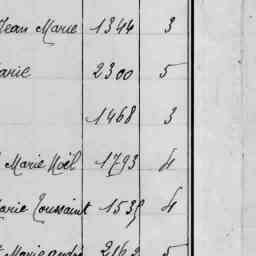 Jean Marie 1344 3
arie 2300 5
1468 3
Marie Noël 1793 4
arie Toussaint 1535 4
Marie André 2162 5